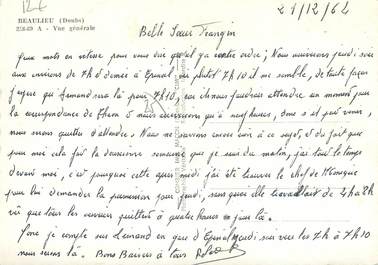 BEAULIEU (Doubs)
22849 A - Vue générale
21/12/62
Deux mots en vitesse pour vous dire qu'il y a contre ordre ; Nous arriverons jeudi soir
aux environs de 7h et demie à Epinal ou plutôt 7h10 il me semble, de toute façon
j'espère que Fernand sera là pour 7h10, car il nous faudrait attendre un moment pour
la correspondance de et nous n'arriverions qu'à neuf heures, donc s'il peut venir,
nous serons quittes d'attendre. Nous ne savons encore rien à ce sujet, et du fait que
pour moi cela fait la deuxième semaine que je suis du matin, j'ai tout le temps
devant moi, c'est pourquoi cette après-midi j'ai été trouver le chef de Monique
pour lui demander la permission pour jeudi, sans quoi elle travaillait de 4h à 2h
vu que tous les services quittent à quatre heures ce jour là.
Donc je compte sur Fernand en gare d'Epinal jeudi soir vers les 7h à 7h10
nous serons là. Bons Baisers à tous